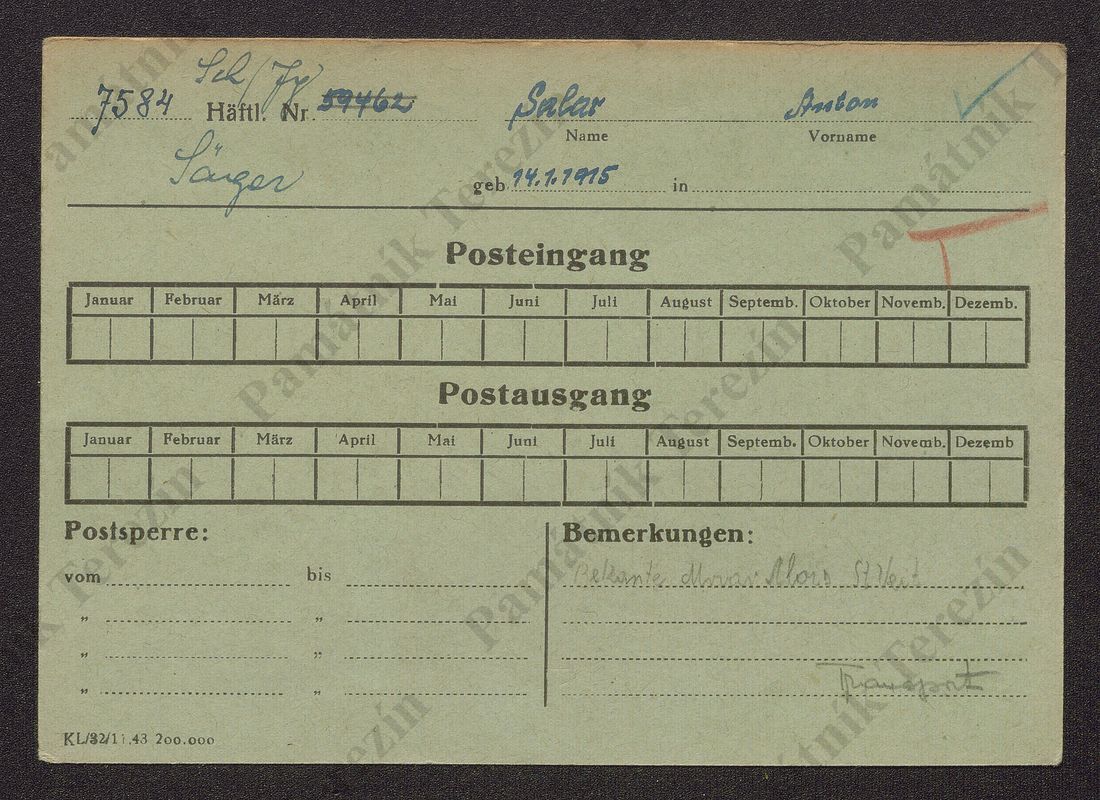 Sch/Jg
7584 Häftl. Nr. 59462 Salar Anton
Name Vorname
geb. 14.1.1915 in
T
Posteingang
Januar Februar März April Mai Juni Juli August Septemb. Oktober Novemb. Dezemb.
Postausgang
Januar Februar März April Mai Juni Juli August Septemb. Oktober Novemb. Dezemb
Postsperre: Bemerkungen:
vom bis
Bekante Alois St Veit
„ „
„ „
„ „
Transport
KL/32/11.43 200.000
Památník Terezín